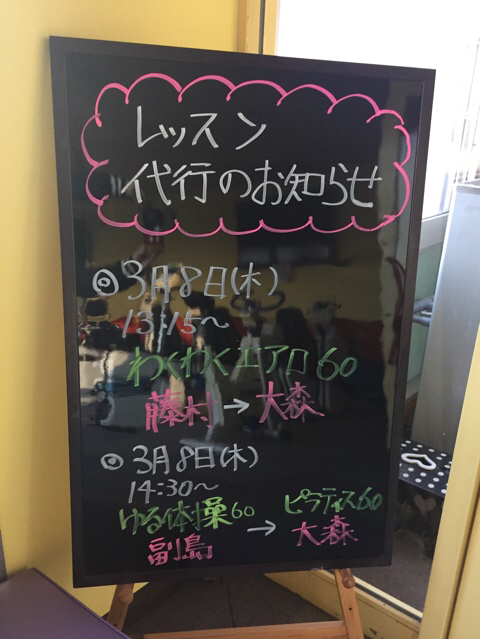 レッスン
代行のお知らせ
◎3月8日(木)
13:15～
わくわくエアロ60
藤村→大森
◎3月8日(木)
14:30～
ゆる体操60 → ピラティス60
副島 大森